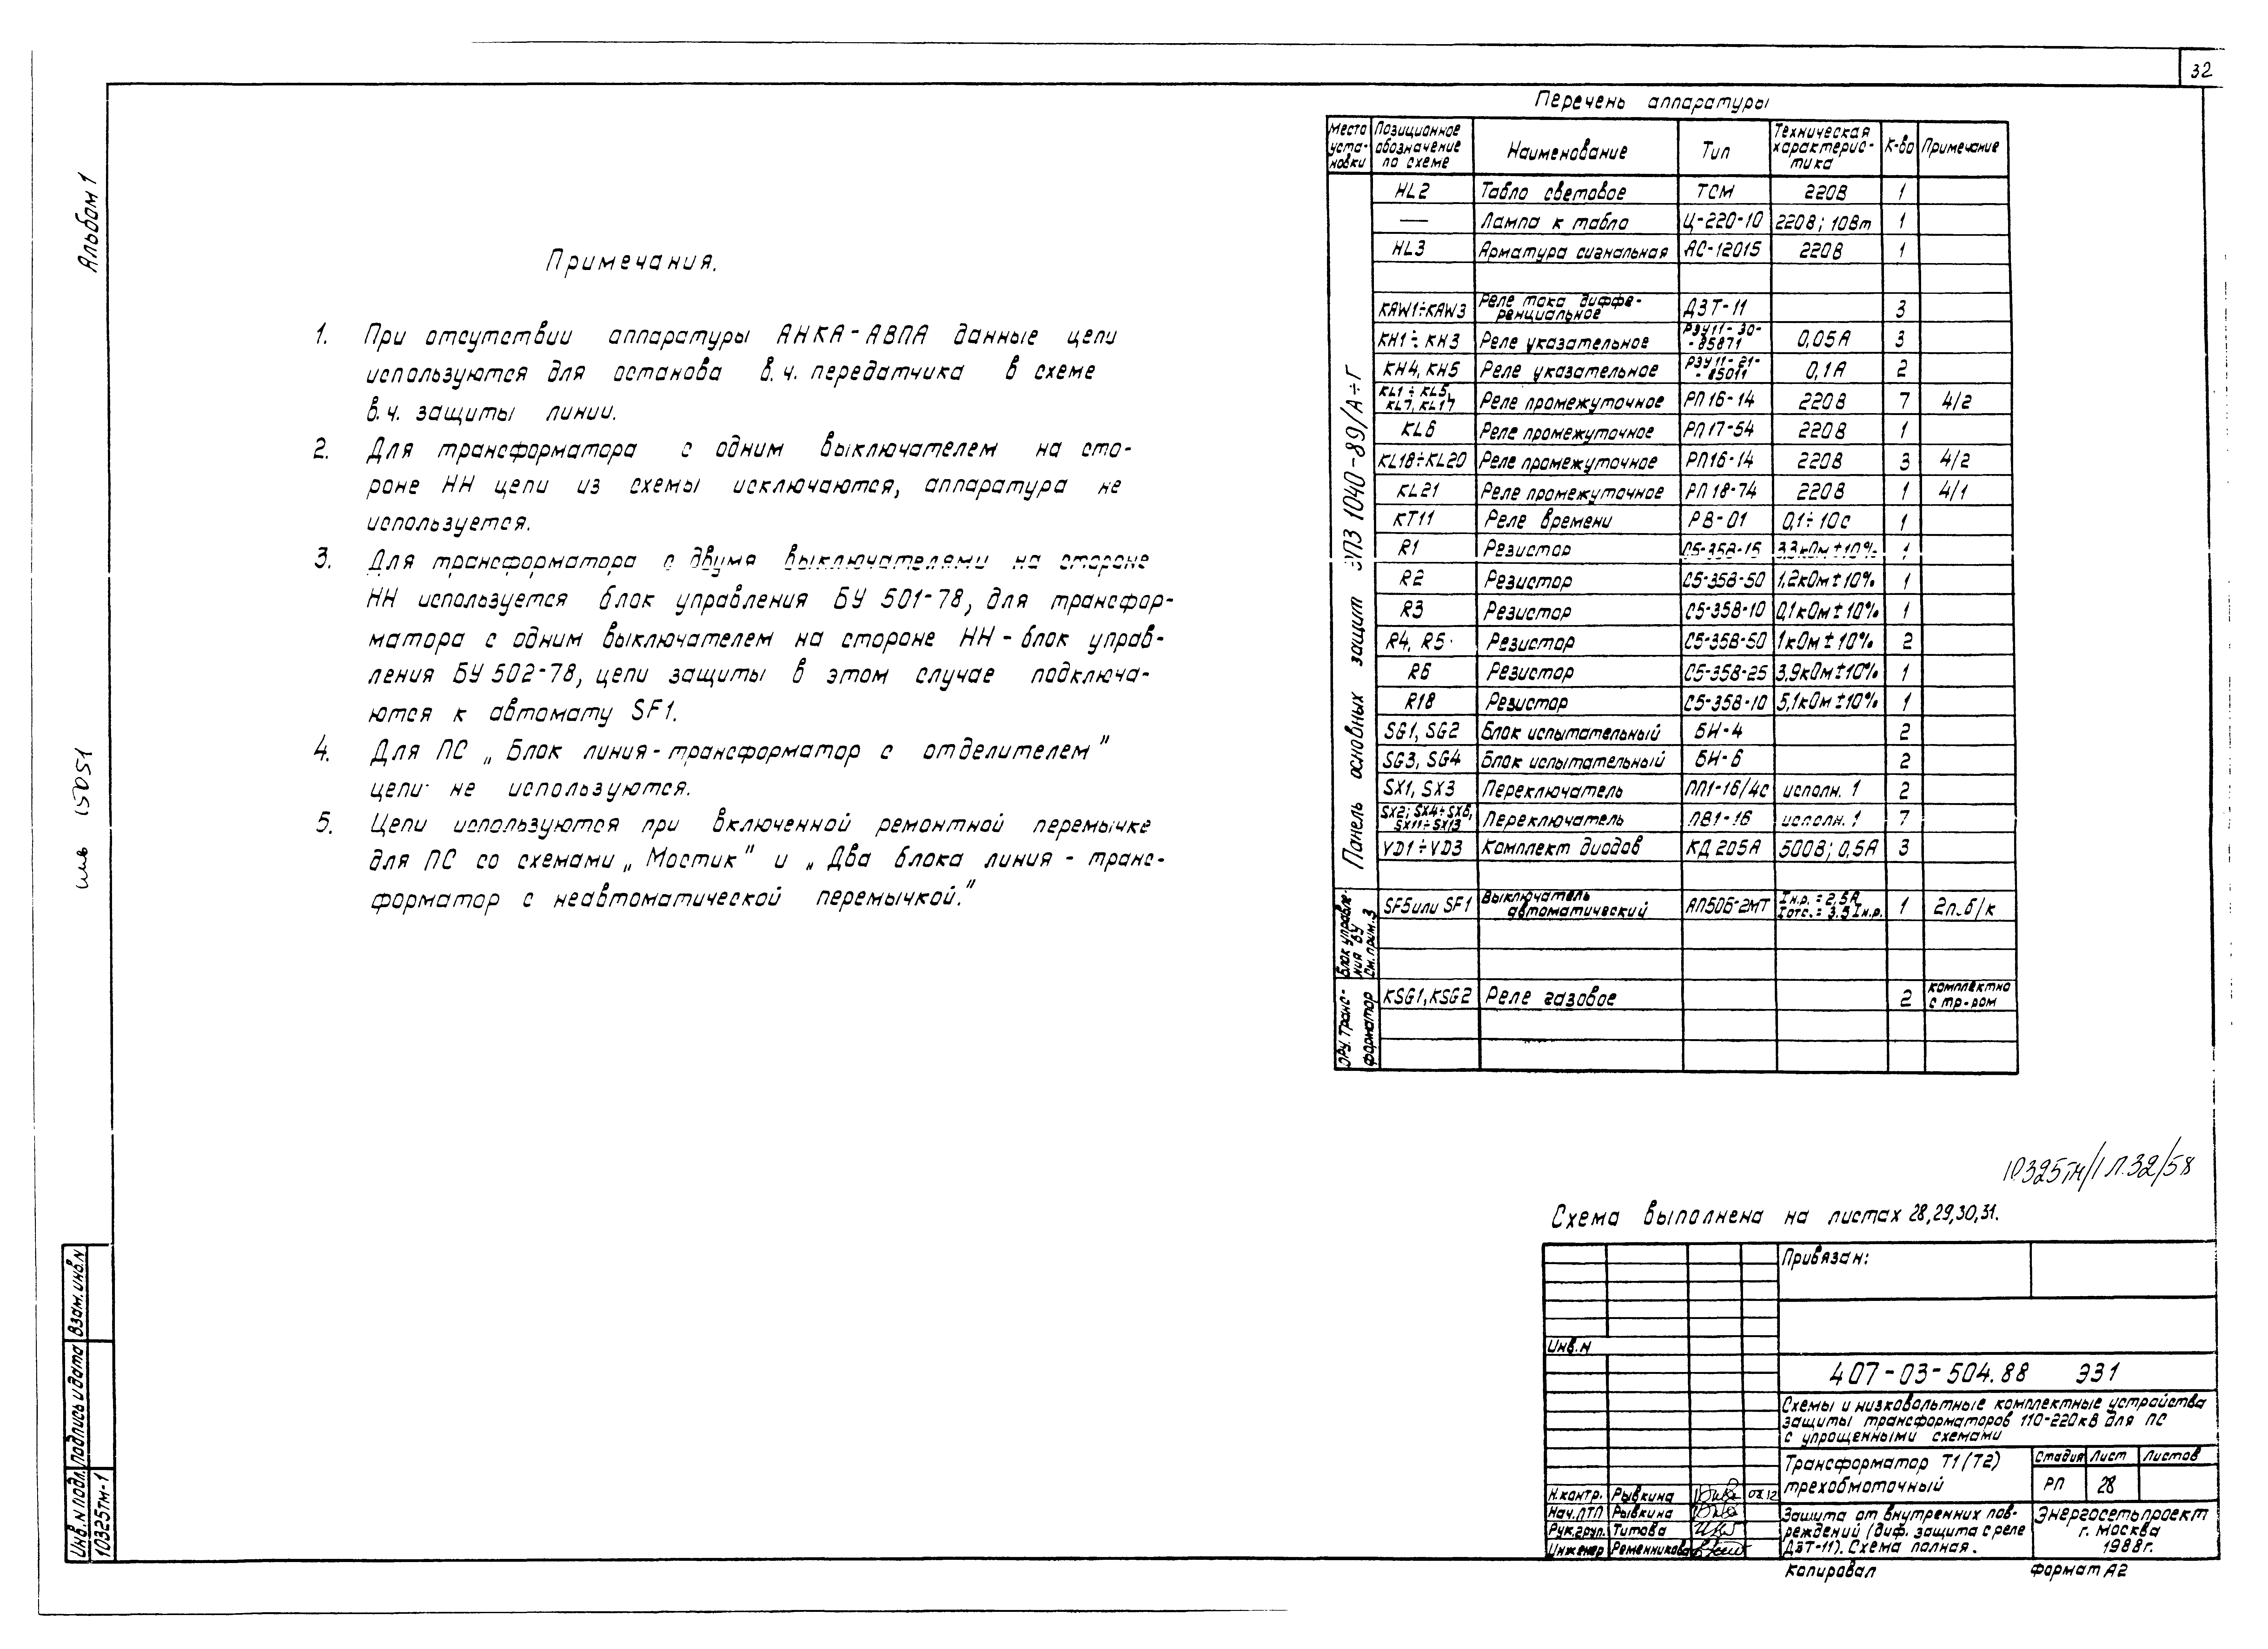 32
Альбом 1
инв 15051
Примечания.
1. При отсутствии аппаратуры АНКА-АВПА данные цепи
используются для останова в.ч. передатчика в схеме
в.ч. защиты линии.
2. Для трансформатора с одним выключателем на сто-
роне НН цепи из схемы исключаются, аппаратура не
используется.
3. Для трансформатора с двумя выключателями на стороне
НН используется блок управления БУ 501-78, для трансфор-
матора с одним выключателем на стороне НН - блок управ-
ления БУ 502-78, цепи защиты в этом случае подключа-
ются к автомату SF1.
4. Для ПС „Блок линия-трансформатор с отделителем"
цепи не используются.
5. Цепи используются при включенной ремонтной перемычке
для ПС со схемами „Мостик" и „Два блока линия - транс-
форматор с неавтоматической перемычкой."
Перечень аппаратуры
Место уста- новки | Позиционное обозначение по схеме | Наименование | Тип | Техническая характерис- тика | К-во | Примечание
Панель основных защит ЭПЗ 1040-89/А÷Г
HL2 Табло световое ТСМ 220В 1
— Лампа к табло Ц-220-10 220В; 10Вт 1
HL3 Арматура сигнальная АС-12015 220В 1
KAW1÷KAW3 Реле тока диффе- ренциальное ДЗТ-11 3
KH1÷KH3 Реле указательное РЭУ11-30- -85871 0,05А 3
KH4, KH5 Реле указательное РЭУ11-21- -85011 0,1А 2
KL1÷KL5, KL7, KL17 Реле промежуточное РП16-14 220В 7 4/2
KL6 Реле промежуточное РП17-54 220В 1
KL18÷KL20 Реле промежуточное РП16-14 220В 3 4/2
KL21 Реле промежуточное РП18-74 220В 1 4/1
KT11 Реле времени РВ-01 0,1÷10с 1
R1 Резистор С5-35В-15 3,3кОм±10% 1
R2 Резистор С5-35В-50 1,2кОм±10% 1
R3 Резистор С5-35В-10 0,1кОм±10% 1
R4, R5 Резистор С5-35В-50 1кОм±10% 2
R6 Резистор С5-35В-25 3,9кОм±10% 1
R18 Резистор С5-35В-10 5,1кОм±10% 1
SG1, SG2 Блок испытательный БИ-4 2
SG3, SG4 Блок испытательный БИ-6 2
SX1, SX3 Переключатель ПП1-16/4с исполн. 1 2
SX2; SX4÷SX6, SX11÷SX13 Переключатель ПВ1-16 исполн. 1 7
VD1÷VD3 Комплект диодов КД 205А 500В; 0,5А 3
Блок управле- ния БУ См. прим.3
SF5 или SF1 Выключатель автоматический АП50Б-2МТ Iн.р. = 2,5А Iотс. = 3,5 Iн.р. 1 2п. б/к
ОРУ. Транс- форматор
KSG1, KSG2 Реле газовое 2 комплектно с тр-ром
10325тм/1 Л.32/58
Схема выполнена на листах 28,29,30,31.
Привязан:
Инв.N
407-03-504.88 ЭЗ1
Схемы и низковольтные комплектные устройства
защиты трансформаторов 110-220кВ для ПС
с упрощенными схемами
Трансформатор Т1(Т2)
трехобмоточный
Стадия Лист Листов
РП 28
Н.контр. Рывкина 08.12
Нач.ПТП Рывкина
Рук.груп. Титова
Инженер Ременникова
Защита от внутренних пов-
реждений (диф. защита с реле
ДЗТ-11). Схема полная.
Энергосетьпроект
г. Москва
1988г.
Копировал
Формат А2
Взам. инв.N
Подпись и дата
Инв.N подл.
10325тм-1